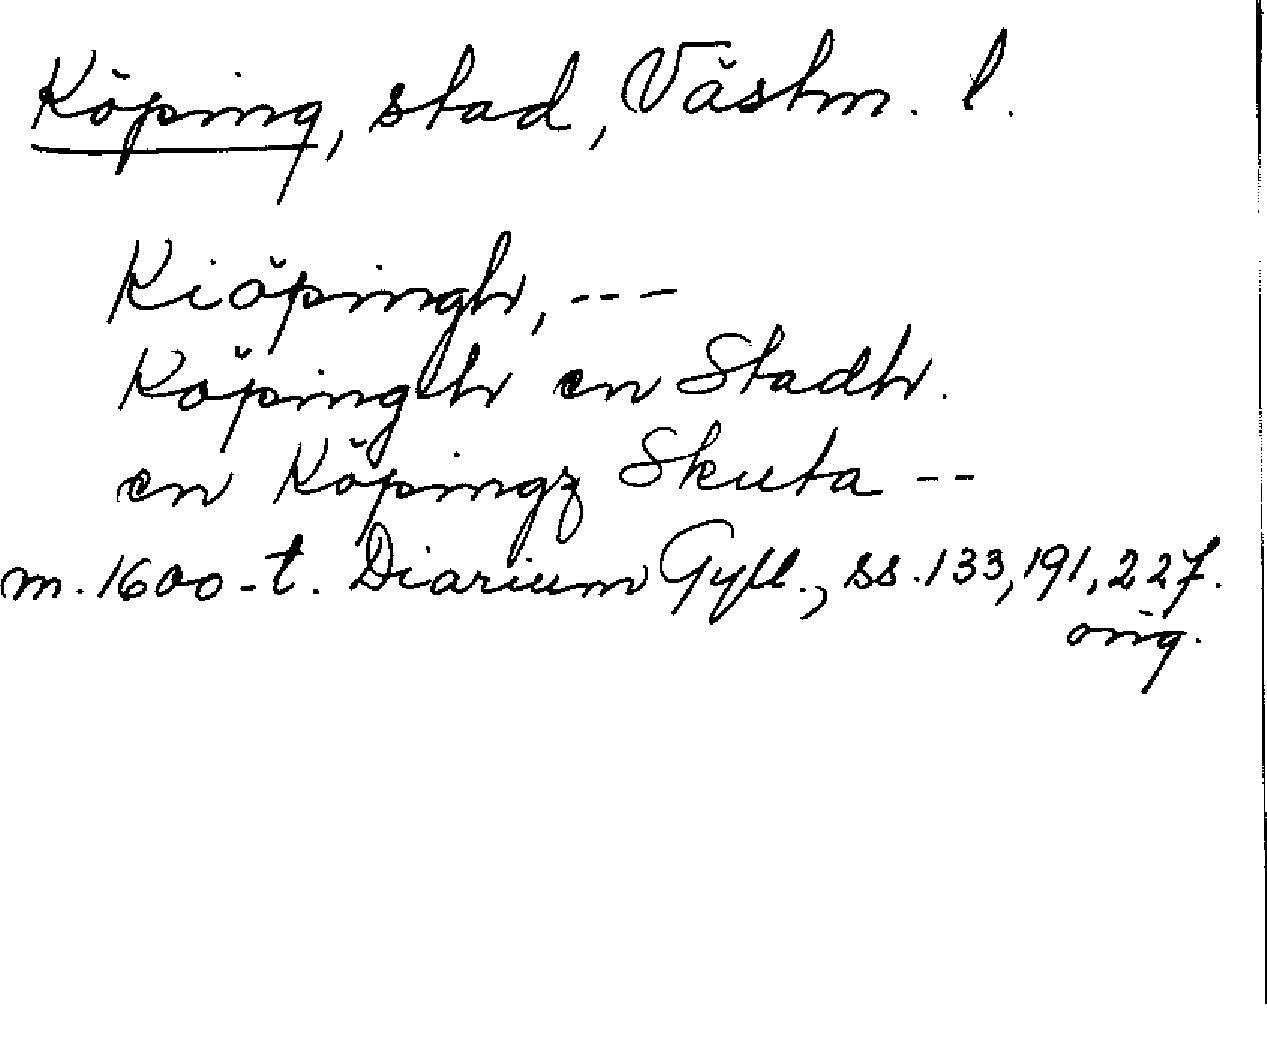 Köping, stad, Västm. l.
Kiöpingh, ---
Köpingh en Stadh.
en Köpingz Skuta --
m. 1600-t. Diarium Gyll., ss. 133, 191, 227.
orig.